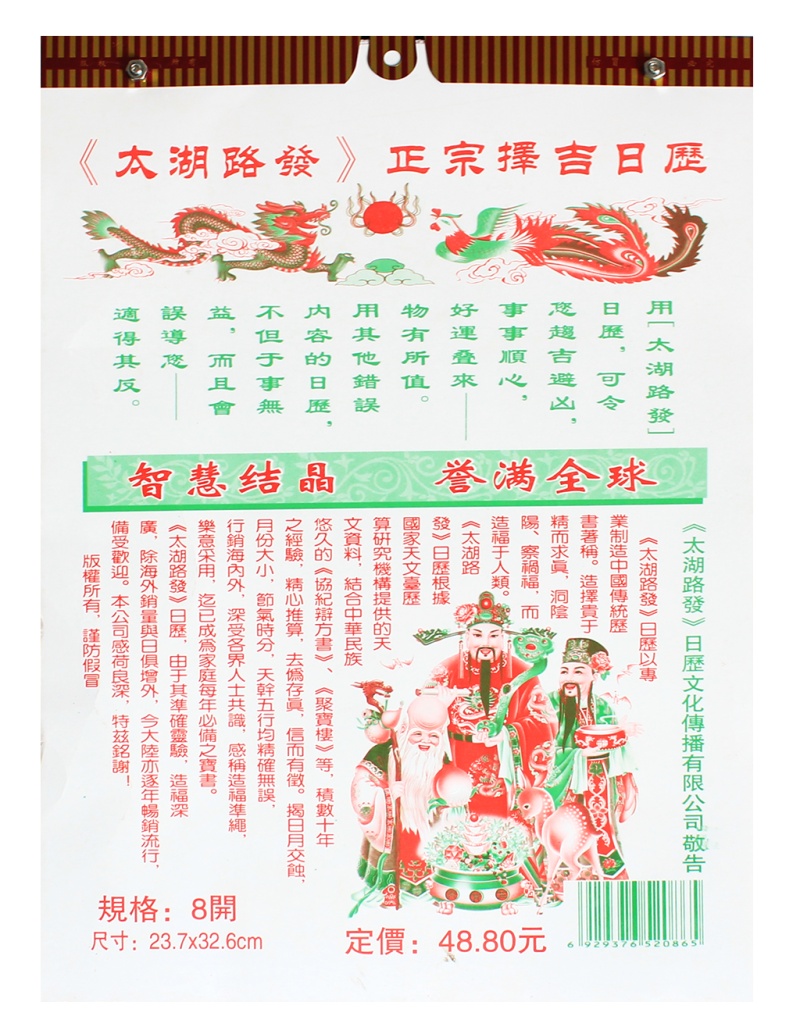 《太湖路發》正宗擇吉日歷
用[太湖路發]
日歷，可令
您趨吉避凶，
事事順心，
好運叠來——
物有所值。
用其他錯誤
内容的日歷，
不但于事無
益，而且會
誤導您——
適得其反。
智慧结晶 誉满全球
《太湖路發》日歷文化傳播有限公司敬告
《太湖路發》日歷以專
業制造中國傳統歷
書著稱。造擇貴于
精而求眞，洞陰
陽、察禍福，而
造福于人類。
《太湖路
發》日歷根據
國家天文臺歷
算研究機構提供的天
文資料，結合中華民族
悠久的《協紀辯方書》、《聚寶樓》等，積數十年
之經驗，精心推算，去僞存眞，信而有徵。揭日月交蝕，
月份大小，節氣時分，天幹五行均精確無誤，
行銷海內外，深受各界人士共識，感稱造福準繩，
樂意采用，迄已成為家庭每年必備之寶書。
《太湖路發》日歷，由于其準確靈驗，造福深
廣，除海外銷量與日俱增外，今大陸亦逐年暢銷流行，
備受歡迎。本公司感荷良深，特兹銘謝！
版權所有，謹防假冒
規格：8開
尺寸：23.7x32.6cm
定價：48.80元
6 929376 520865